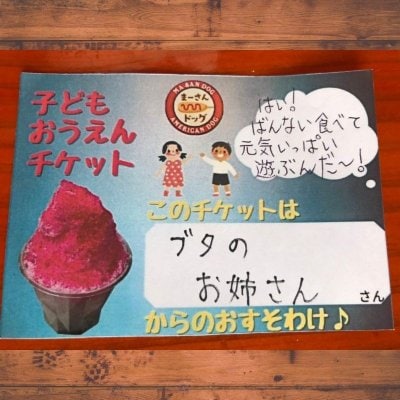 子ども
おうえん
チケット
MA SAN DOG
まーさん
ドッグ
AMERICAN DOG
はい!
ばんない食べて
元気いっぱい
遊ぶんだ〜!
このチケットは
ブタの
お姉さん
さん
からのおすそわけ♪